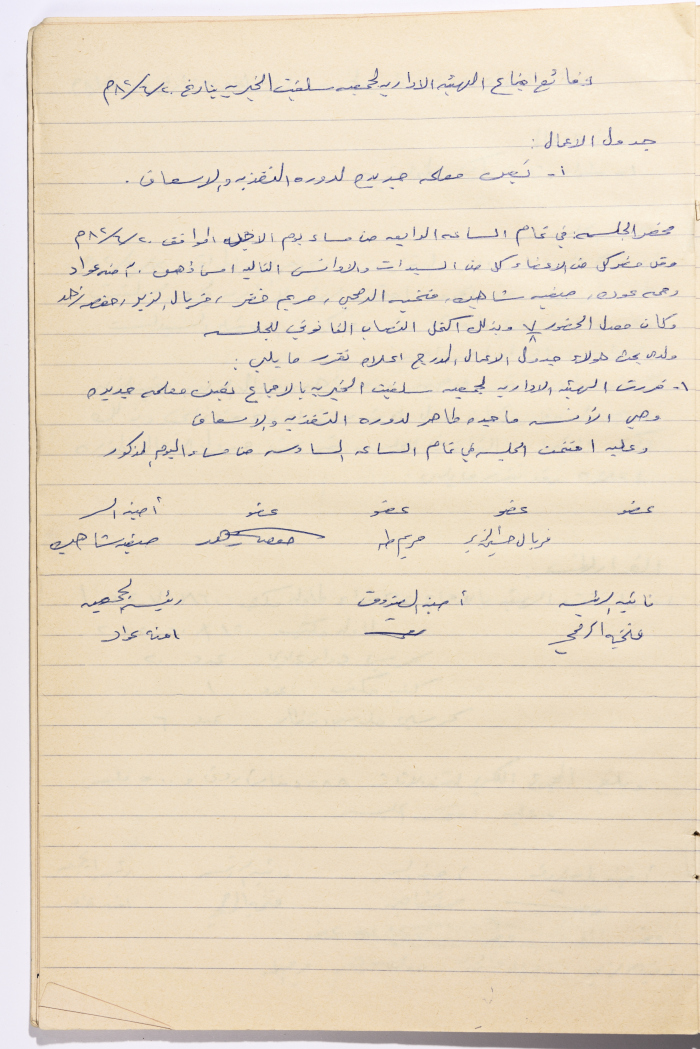 وقائع اجتماع الهيئه الاداريه لجمعيه سلفيت الخيريه بتاريخ ٢٠/٤/٨٢م
جدول الاعمال :
١- تعيين معلمه جديده لدوره التغذيه والاسعاف .
محضر الجلسه: في تمام الساعه الرابعه من مساء يوم الموافق ٢٠/٤/٨٢م
وقد حضر كل من الاعضاء كل من السيدات والاوانس التاليه اسمائهن . آمنه عواد
رحمه عوده , صفيه شاهين , فتحيه , مريم خضر , فريال الزير , حفصه
وكان معدل الحضور ٧/٨ وبذلك اكتمل النصاب القانوني للجلسه
ولدى بحث هؤلاء جدول الاعمال المدرج اعلاه تقرر ما يلي :
١- قررت الهيئه الاداريه لجمعيه سلفيت الخيريه بالاجماع تعيين معلمه جديده
وهي الآنسه ماجده طاهر لدوره التغذيه والاسعاف
وعليه اختتمت الجلسه في تمام الساعه السادسه من مساء اليوم المذكور
عضو عضو عضو عضو أمينة السر
فريال حسين الزير مريم طه صفيه شاهين
نائبه الرئيسه أمينة الصندوق رئيسة الجمعيه
فتحيه امنه عواد